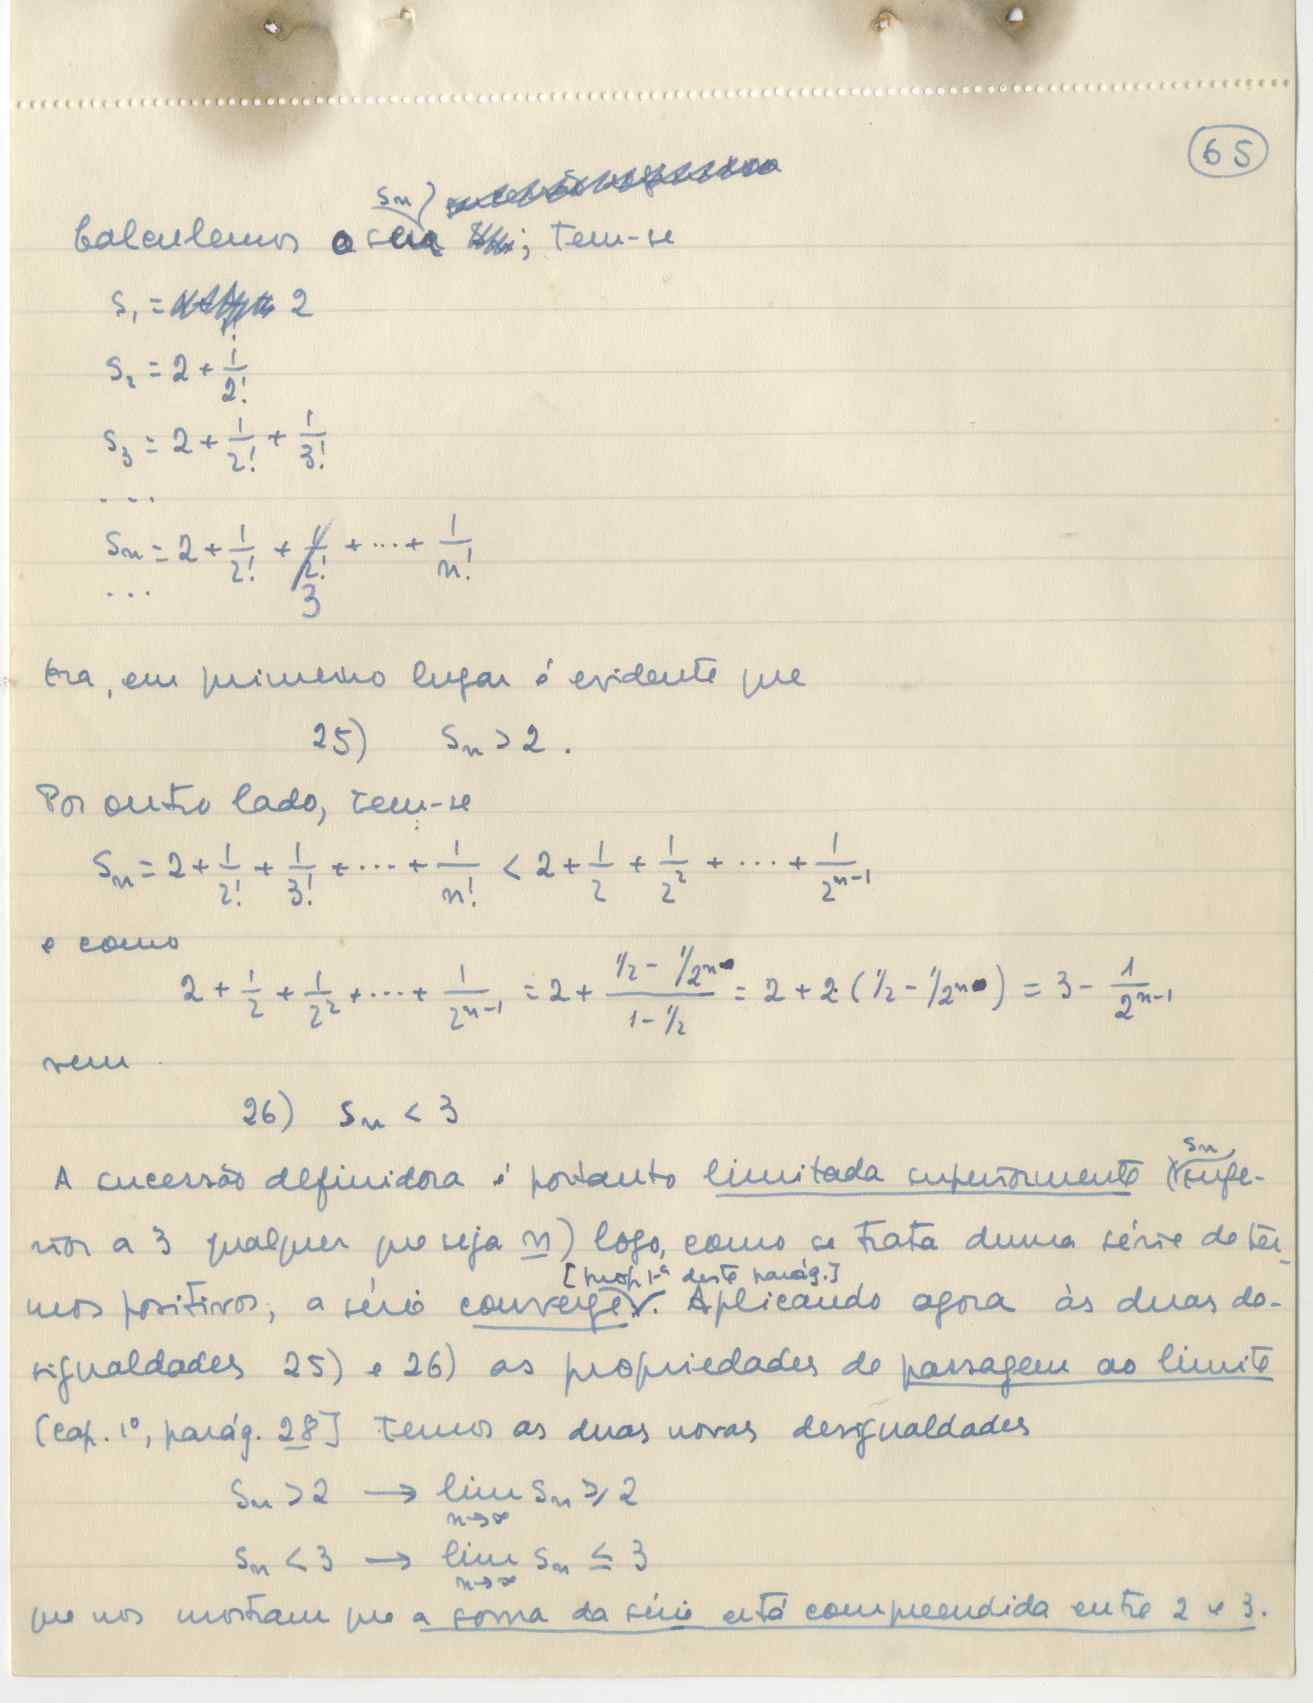 65
Calculemos o seu Sn; tem-se
S₁ = 2
S₂ = 2 + 1/2!
S₃ = 2 + 1/2! + 1/3!
...
Sn = 2 + 1/2! + 1/3! + ... + 1/n!
...
Ora, em primeiro lugar é evidente que
25) Sn > 2.
Por outro lado, tem-se
Sn = 2 + 1/2! + 1/3! + ... + 1/n! < 2 + 1/2 + 1/2² + ... + 1/2ⁿ⁻¹
e como
2 + 1/2 + 1/2² + ... + 1/2ⁿ⁻¹ = 2 + (1/2 - 1/2ⁿ)/(1 - 1/2) = 2 + 2·(1/2 - 1/2ⁿ) = 3 - 1/2ⁿ⁻¹
vem
26) Sn < 3
A sucessão definidora é portanto limitada superiormente (Sn infe-
rior a 3 qualquer que seja n) logo, como se trata duma série de ter-
[prop. 1ª deste parág.]
mos positivos, a série converge. Aplicando agora às duas de-
sigualdades 25) e 26) as propriedades de passagem ao limite
[cap. 1º, parág. 28] temos as duas novas desigualdades
Sn > 2 → lim Sn ≥ 2
n→∞
Sn < 3 → lim Sn ≤ 3
n→∞
que nos mostram que a soma da série está compreendida entre 2 e 3.